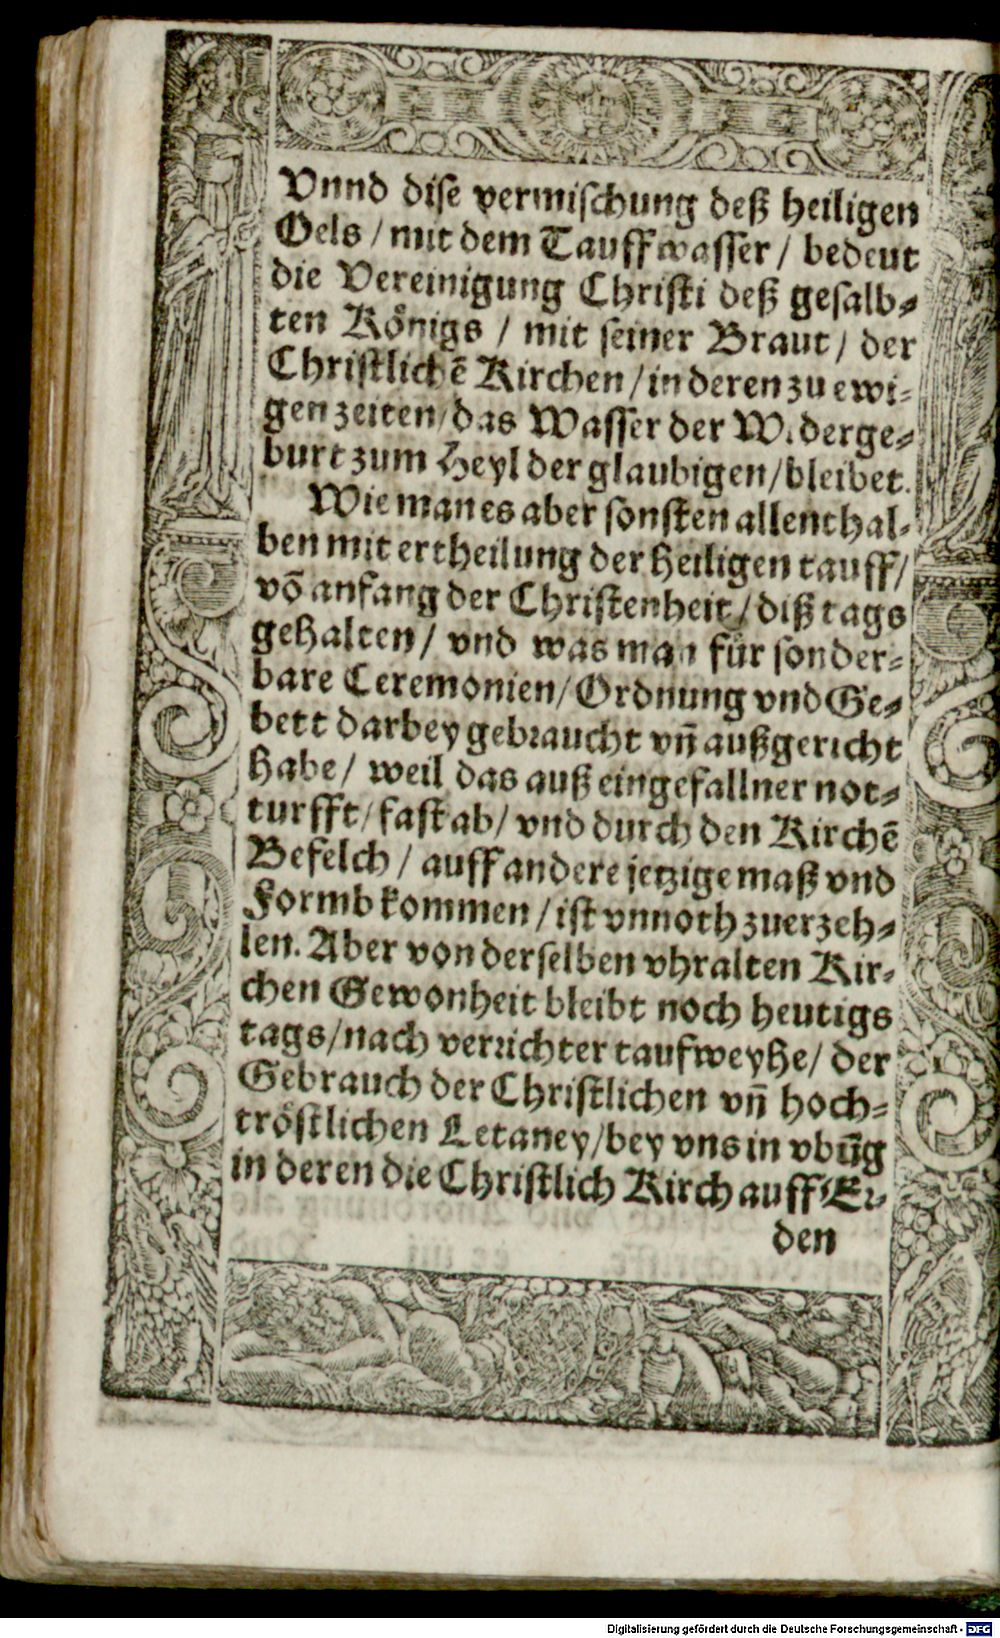 Vnnd dise vermischung deß heiligen
Oels / mit dem Tauffwasser / bedeut
die Vereinigung Christi deß gesalb⸗
ten Koͤnigs / mit seiner Braut / der
Christlichē Kirchen / in deren zu ewi⸗
gen zeiten / das Wasser der Widerge⸗
burt zum Heyl der glaubigen / bleibet.
Wie man es aber sonsten allenthal⸗
ben mit ertheilung der heiligen tauff /
võ anfang der Christenheit / diß tags
gehalten / vnd was man fuͤr sonder⸗
bare Ceremonien / Ordnung vnd Ge⸗
bett darbey gebraucht vn̄ außgericht
habe / weil das auß eingefallner not⸗
turfft / fast ab / vnd durch den Kirchē
Befelch / auff andere jetzige maß vnd
Formb kommen / ist vnnoth zuerzeh⸗
len. Aber von derselben vhralten Kir⸗
chen Gewonheit bleibt noch heutigs
tags / nach verrichter taufweyhe / der
Gebrauch der Christlichen vn̄ hoch⸗
troͤstlichen Letaney / bey vns in vbūg
in deren die Christlich Kirch auff Er⸗
den
Digitalisierung gefördert durch die Deutsche Forschungsgemeinschaft - DFG